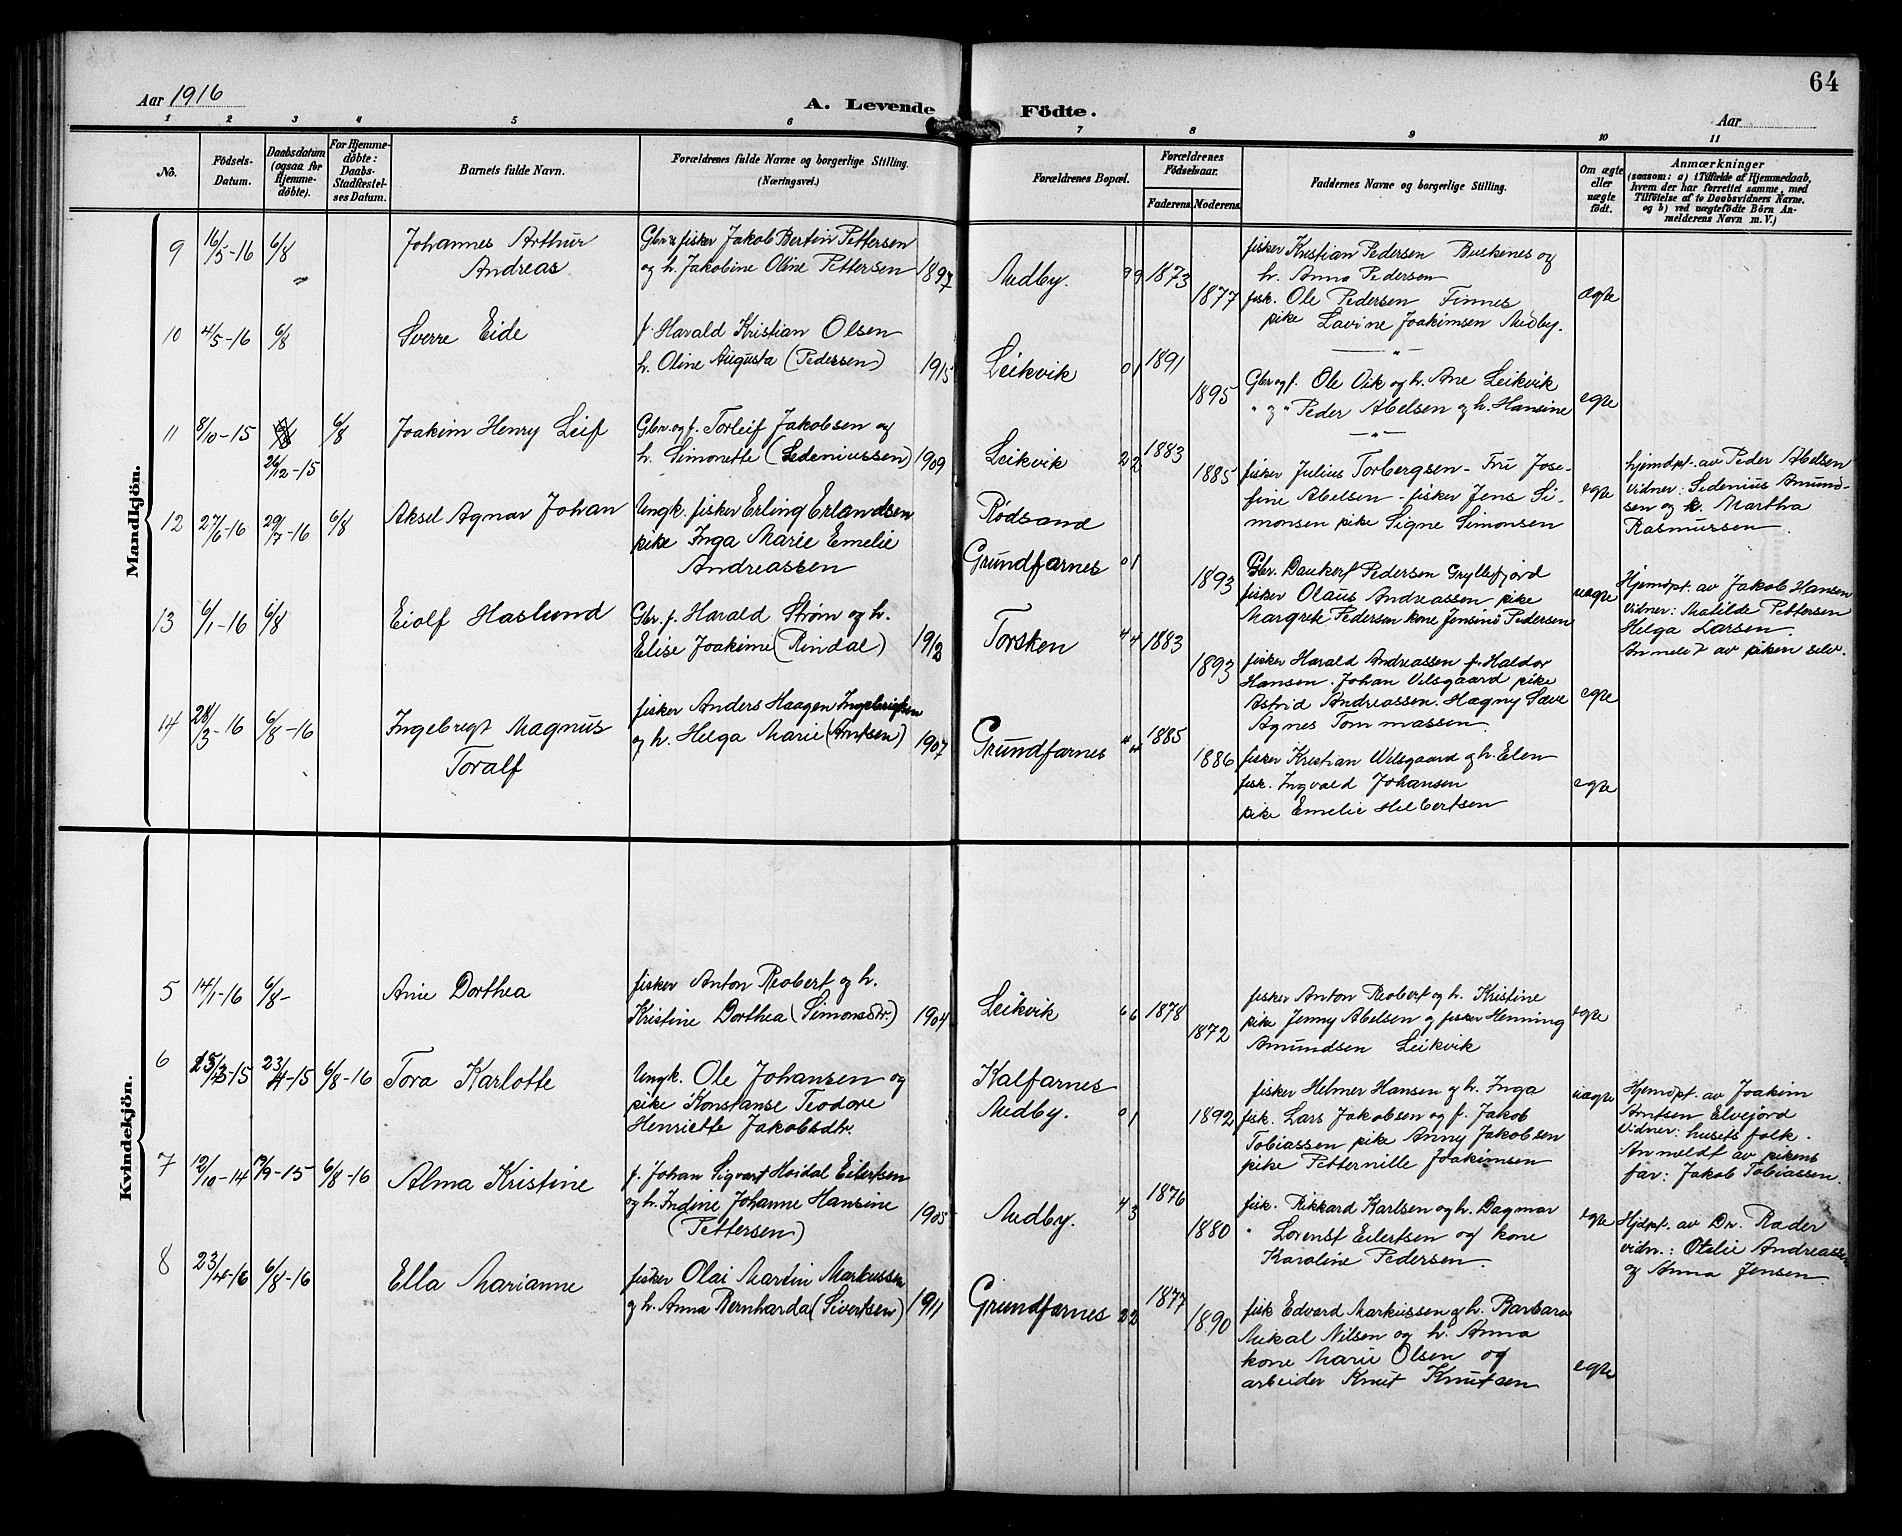 64
Aar 1916
A. Levende Födte.
Aar
1 2 3 4 5 6 7 8 9 10 11
No.
Födsels-Datum.
Daabsdatum (ogsaa for Hjemme-döbte).
For Hjemme-döbte: Daabs-Stadfæstel-ses Datum.
Barnets fulde Navn.
Forældrenes fulde Navne og borgerlige Stilling.
(Næringsvei.)
Forældrenes Bopæl.
Forældrenes Födselsaar.
Faderens. Moderens.
Faddernes Navne og borgerlige Stilling.
Om ægte eller uægte födt.
Anmærkninger
(saasom: a) i Tilfælde af Hjemmedaab,
hvem der har forrettet samme, med
Tilföielse af to Daabsvidners Navne.
og b) ved uægtefödte Börn An-
melderens Navn m. V.)
Mandkjön.
9 16/5-16 6/8
Johannes Arthur
Andreas
Gbr. & fisker Jakob Bertin Pettersen
og h. Jakobine Oline Pettersen 1897
Medby. 9 9 1873
1877
fisker Kristian Pedersen Buskenes og
h. Anna Pedersen
fisk. Ole Pedersen Finnes
pike Lavine Joakimsen Medby.
ægte
10 4/5-16 6/8
Sverre Eide
f. Harald Kristian Olsen
h. Oline Augusta (Pedersen) 1915
Leikvik 0 1 1891
1895
Gbr og f. Ole Vik og h. Ane Leikvik
" og " Peder Abelsen og h. Hansine
egte
11 8/10-15 26/12-15 6/8
Joakim Henry Leif
Gbr. og f. Torleif Jakobsen og
h. Simonette (Sedeniussen) 1909
Leikvik 2 2 1883
1885
fisker Julius Torbergsen - Fru Jose-
fine Abelsen - fisker Jens Si-
monsen pike Signe Simonsen
egte
hjemdpt. av Peder Abelsen
vidner: Sedenius Amund-
sen og k. Martha
Rasmussen
12 27/6-16 29/7-16 6/8
Aksel Agnar Johan
Ungk. fisker Erling Erlandsen
pike Inga Marie Emelie
Andreassen
Rödsand
Grundfarnes 0 1
1893
Gbr. Daukert Pedersen Gryllefjord
fisker Olaus Andreassen pike
Margrete Pedersen kone Jensine Pedersen
uægte
Hjemdpt. av Jakob Hansen
vidner: Matilde Pettersen
Helga Larsen.
Anmeldt av piken selv.
13 6/1-16 6/8
Eiolf Haslund
Gbr. f. Harald Strøm og h.
Elise Joakime (Rindal) 1912
Torsken 4 4 1883
1893
fisker Harald Andreassen f. Haldor
Hansen. Johan Vilsgaard pike
Astrid Andreassen. Hagny Sæve
Agnes Tommassen.
egte
14 28/3-16 6/8-16
Ingebregt Magnus
Toralf
fisker Anders Haagen Ingebrigtsen
og h. Helga Marie (Arntsen) 1907
Grundfarnes 4 4 1885
1886
fisker Kristian Wilsgaard og h. Elen
fisk. Ingvald Johansen
pike Emelie Helbertsen
egte
Kvindekjön.
5 14/1-16 6/8-
Ane Dorthea
fisker Anton Robert og h.
Kristine Dorthea (Simonsdtr.) 1904
Leikvik 6 6 1878
1872
fisker Anton Robert og h. Kristine
pike Jenny Abelsen og fisker Henning
Amundsen Leikvik
egte
6 23/4-15 6/8-16
Tora Karlotte
Ungk. Ole Johansen og
pike Konstanse Teodore
Henriette Jakobsdtr.
Kalfarnes
Medby. 0 1
1892
fisker Helmer Hansen og h. Inga
fisk. Lars Jakobsen og f. Jakob
Tobiassen pike Anny Jakobsen
pike Petternille Joakimsen
uægte
Hjemdpt. av Joakim
Arntsen Elvejord
vidner: husets folk.
Anmeldt av pikens
far: Jakob Tobiassen
7 12/10-14 19/9-15 6/8-16
Alma Kristine
f. Johan Sigvart Hoidal Eilertsen
og h. Indine Johanne Hansine
(Pettersen) 1905
Medby. 4 3 1876
1880
fisk. Rikkard Karlsen og h. Dagmar
" Lorenst Eilertsen og kone
Karoline Pedersen.
egte
Hjdpt. av Dr. Rader
vidn.: Otelie Andreassen
og Anna Jensen.
8 23/4-16 6/8-16
Ella Marianne
fisker Olai Martin Markussen
og h. Anna Bernharda (Sivertsen) 1911
Grundfarnes 2 2 1877
1890
fisk Edvard Markussen og h. Barbara
Mikal Nilsen og h. Anna
kone Marie Olsen og
arbeider Knut Knutsen
egte